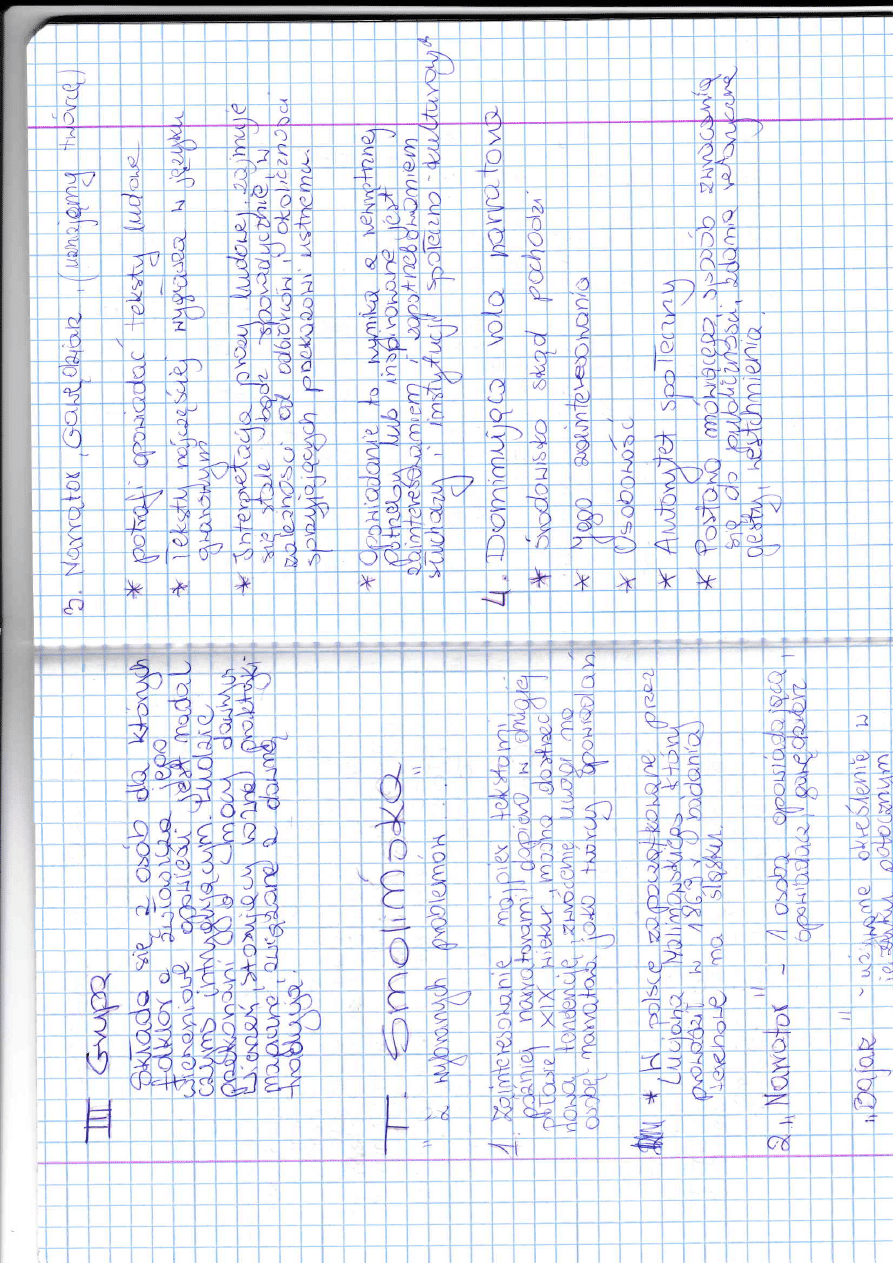 III Grupa
Składa się z osób dla których
folklor a zwłaszcza jego
wierzeniowe opowieści jest nadal
czymś intrygującym. Ludzie
przekonani co do mocy dawnych
wierzeń, stosujący różne praktyki
magiczne, związane z dawną
tradycją.
T. Smolińska
"z wybranych problemów ... "
1. Zainteresowanie najpierw tekstami,
później narratorami, dopiero w drugiej
połowie XIX wieku, można dostrzec
nowa tendencje, zwrócenie uwagi na
osobę narratora jako twórcy opowiadań
* W polsce zapoczątkowane przez
Lucjana Malinowskiego który
prowadził w 1869 r badania
terenowe na śląsku.
2. "Narrator" - 1 osoba opowiadająca,
opowiadacz, gawędziarz
"Bajarz" - używane określenie w
języku potocznym
3. Narrator, Gawędziarz, (uznajemy twórcę)
* potrafi opowiadać teksty ludowe
* Teksty najczęściej wygłasza w języku
gwarowym
* Interpretacją prozy ludowej, zajmuje
się stale bądź sporadycznie w
zależności od odbiorców i okoliczności
sprzyjających przekazowi ustnemu.
* Opowiadanie to wynika z wewnętrznej
potrzeby lub inspirowane jest
zainteresowaniem i zapotrzebowaniem
słuchaczy i instytucji społeczno-kulturowych
4. Dominująca rola narratora
* Środowisko skąd pochodzi
* Jego zainteresowania
* Osobowość
* Autorytet społeczny
* Postawa mówiącego, sposób zwracania
się do publiczności, zdania retoryczne
gesty, westchnienia.